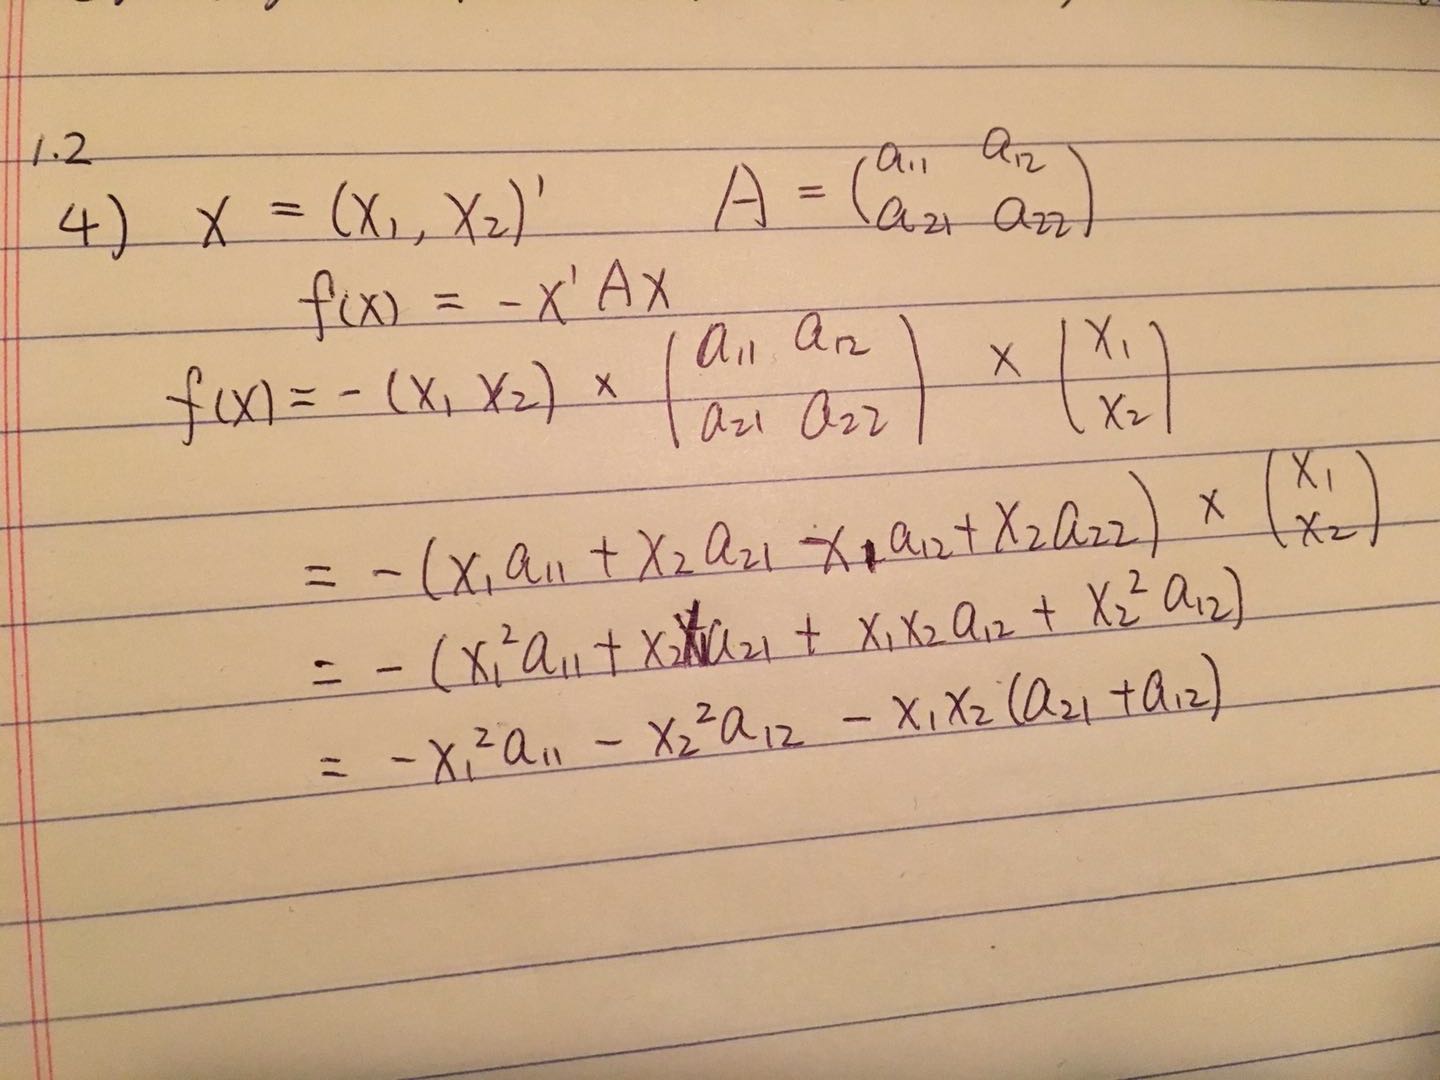 1.2
4) x = (x₁, x₂)' A = (a₁₁ a₁₂
a₂₁ a₂₂)
f(x) = -x'Ax
f(x) = -(x₁ x₂) × (a₁₁ a₁₂
a₂₁ a₂₂) × (x₁
x₂)
= -(x₁a₁₁ + x₂a₂₁ x₁a₁₂ + x₂a₂₂) × (x₁
x₂)
= -(x₁²a₁₁ + x₂x₁a₂₁ + x₁x₂a₁₂ + x₂²a₁₂)
= -x₁²a₁₁ - x₂²a₁₂ - x₁x₂(a₂₁ + a₁₂)